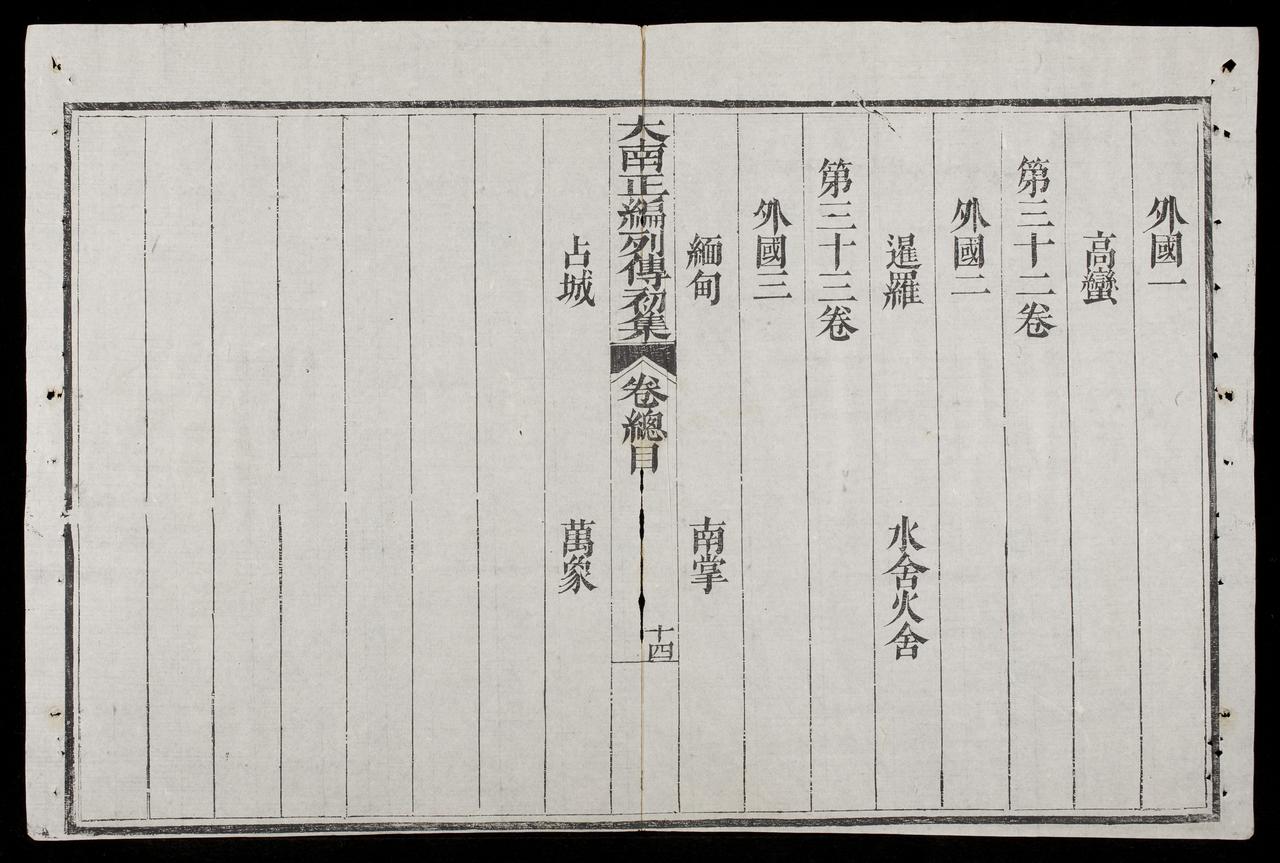 外國一
高蠻
第三十二卷
外國二
暹羅 水舍火舍
第三十三卷
外國三
緬甸 南掌
大南正編列傳初集 卷總目 十四
占城 萬象